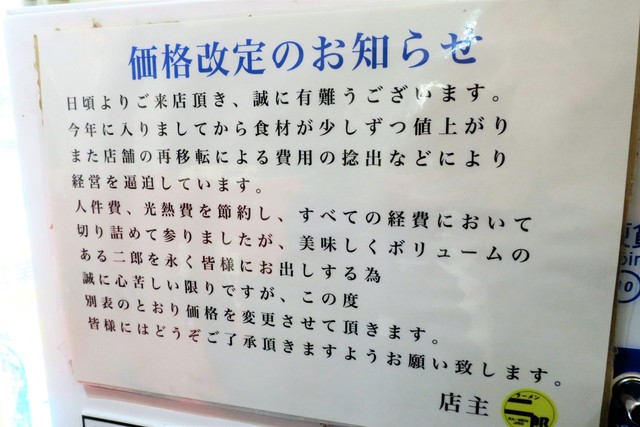 価格改定のお知らせ
日頃よりご来店頂き、誠に有難うございます。
今年に入りましてから食材が少しずつ値上がり
また店舗の再移転による費用の捻出などにより
経営を逼迫しています。
人件費、光熱費を節約し、すべての経費において
切り詰めて参りましたが、美味しくボリュームの
ある二郎を永く皆様にお出しする為
誠に心苦しい限りですが、この度
別表のとおり価格を変更させて頂きます。
皆様にはどうぞご了承頂きますようお願い致します。
店主
ラーメン
二郎